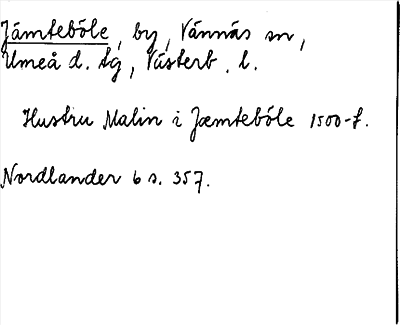 Jämteböle, by, Vännäs sn,
Umeå d. tg, Västerb. l.
Hustru Malin i Jæmteböle 1500-t.
Nordlander 6 s. 357.